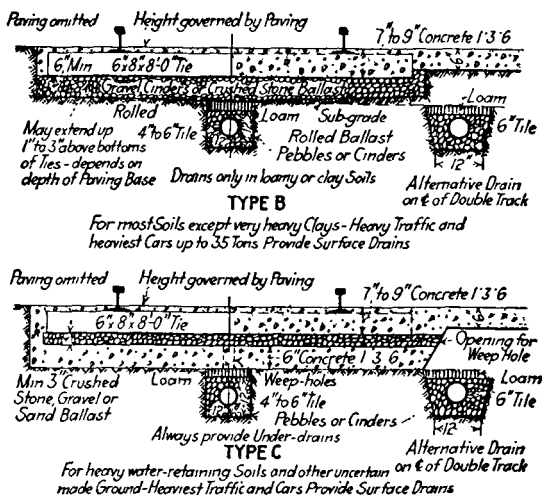 Paving omitted Height governed by Paving
7" to 9" Concrete 1·3·6
6" Min 6x8x8'-0" Tie 6"
Gravel Cinders or Crushed Stone Ballast
Rolled
Loam Sub-grade
Loam
May extend up
1" to 3" above bottoms
of Ties - depends on
depth of Paving Base
4" to 6" Tile
Rolled Ballast
Pebbles or Cinders
6" Tile
12"
Drains only in loamy or clay Soils
Alternative Drain
on ℄ of Double Track
TYPE B
For most Soils except very heavy Clays - Heavy Traffic and
heaviest Cars up to 35 Tons Provide Surface Drains
Paving omitted Height governed by Paving
7" to 9" Concrete 1·3·6
6"x 8"x 8'-0" Tie
Opening for
Weep Hole
6" Concrete 1 3 6
Min 3" Crushed
Stone, Gravel or
Sand Ballast
Loam
Weep-holes
4" to 6" Tile
Pebbles or Cinders
Loam
6" Tile
12"
12"
Always provide Under-drains
Alternative Drain
on ℄ of Double Track
TYPE C
For heavy water-retaining Soils and other uncertain
made Ground-Heaviest Traffic and Cars Provide Surface Drains